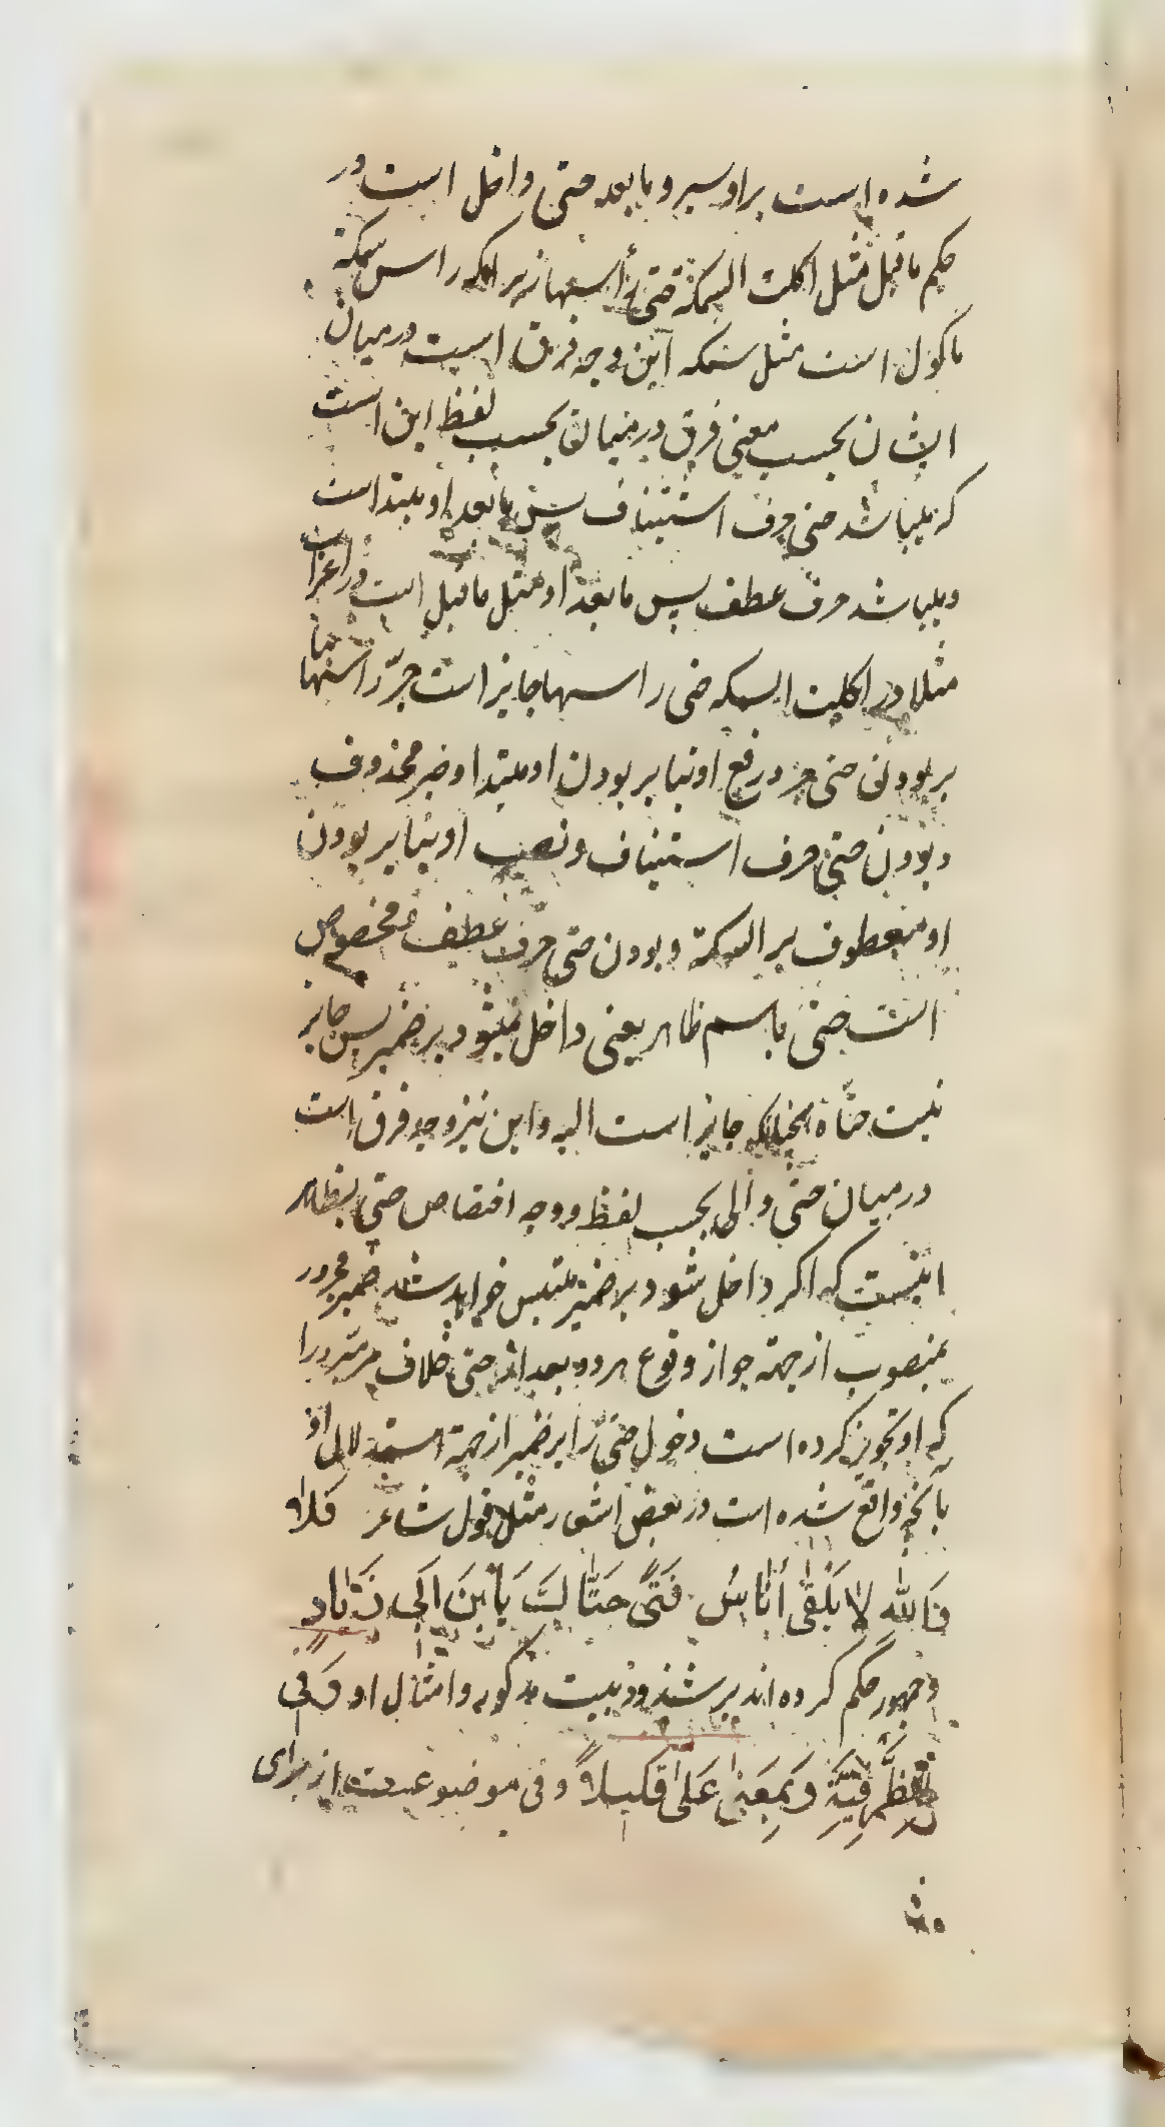 شده است بر او سیر و ما بعد حتی داخل است در
حکم ماقبل مثل اکلت السمکة حتی رأسها زیر انکه راس سمکه
ماکول است مثل سمکه این وجه فرق است در میان
ایشان بحسب معنی فرق در میان بحسب لفظ این است
که میباشد حتی حرف استیناف پس ما بعد او مبتداست
و میباشد حرف عطف پس ما بعد او مثل ماقبل است در اعراب
مثلا در اکلت السمکه حتی راسها جایز است جرّ راسها بنا
بر بودن حتی جر و رفع او بنا بر بودن او مبتدا و خبر محذوف
و بودن حتی حرف استیناف و نصب او بنا بر بودن
او معطوف بر السمکة و بودن حتی حرف عطف و مخصوص
است حتی باسم ظاهر یعنی داخل نمیشود بر ضمیر پس جایز
نیست حتّاه چنانکه جایز است الیه و این نیز وجه فرق است
در میان حتی و الی بحسب لفظ و وجه اختصاص حتی بظاهر
اینست که اکر داخل شود بر ضمیر ملتبس خواهد شد ضمیر مجرور
بمنصوب از جهة جواز وقوع هر دو بعد از حتی خلاف مر مبّرد را
که او تجویز کرده است دخول حتی را بر ضمیر از جهة استدلال او
بآنچه واقع شده است در بعض اشعار مثل قول شاعر فلا
فَاللّٰهِ لا یَلْقٰی اُنَاسٌ فَتًی حَتّاكَ یَابْنَ اَبی زیاد
و جمهور حکم کرده اند بر شذوذ بیت مذکور و امثال او وَفی
للظَّرْفِیَّةِ وَبِمَعْنٰی عَلٰی قَلیلاً و فی موضوعست از برای